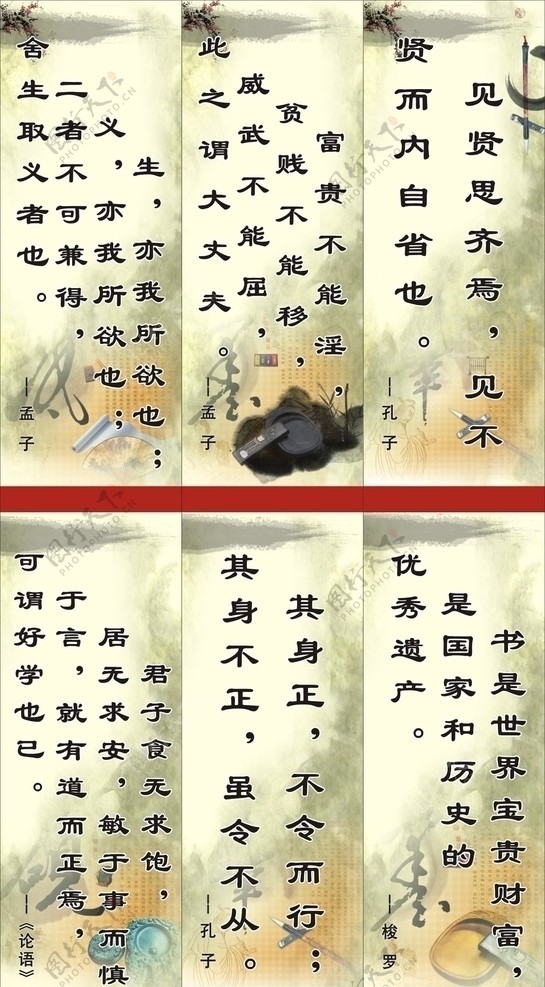 生，亦我所欲也；
义，亦我所欲也；
二者不可兼得，
舍生取义者也。
—孟子
富贵不能淫，
贫贱不能移，
威武不能屈，
此之谓大丈夫。
—孟子
见贤思齐焉，见不
贤而内自省也。
—孔子
君子食无求饱，
居无求安，敏于事而慎
于言，就有道而正焉，
可谓好学也已。
—《论语》
其身正，不令而行；
其身不正，虽令不从。
—孔子
书是世界宝贵财富，
是国家和历史的
优秀遗产。
—梭罗